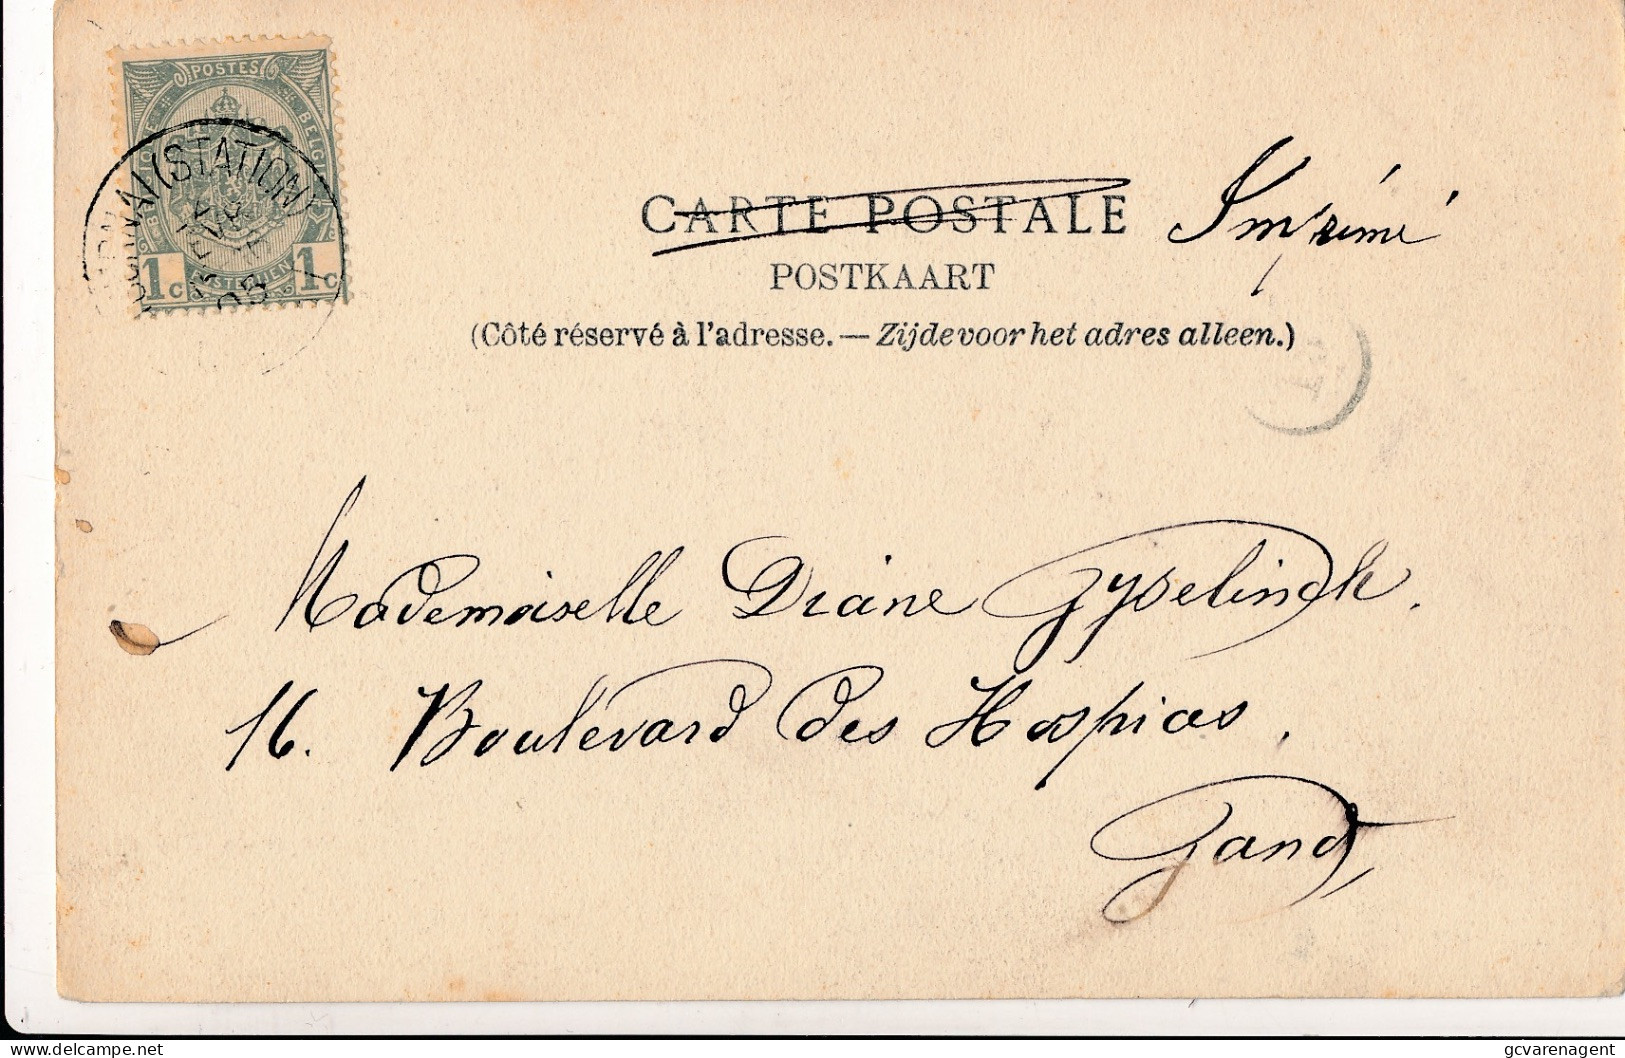 POSTES
BELGIQUE
1c POSTERIJEN 1c
(STATION)
CARTE POSTALE Imprimé
POSTKAART
(Côté réservé à l'adresse. — Zijde voor het adres alleen.)
Mademoiselle Diane Gyselinck.
16. Boulevard des Hospices.
Gand,
gcvarenagent